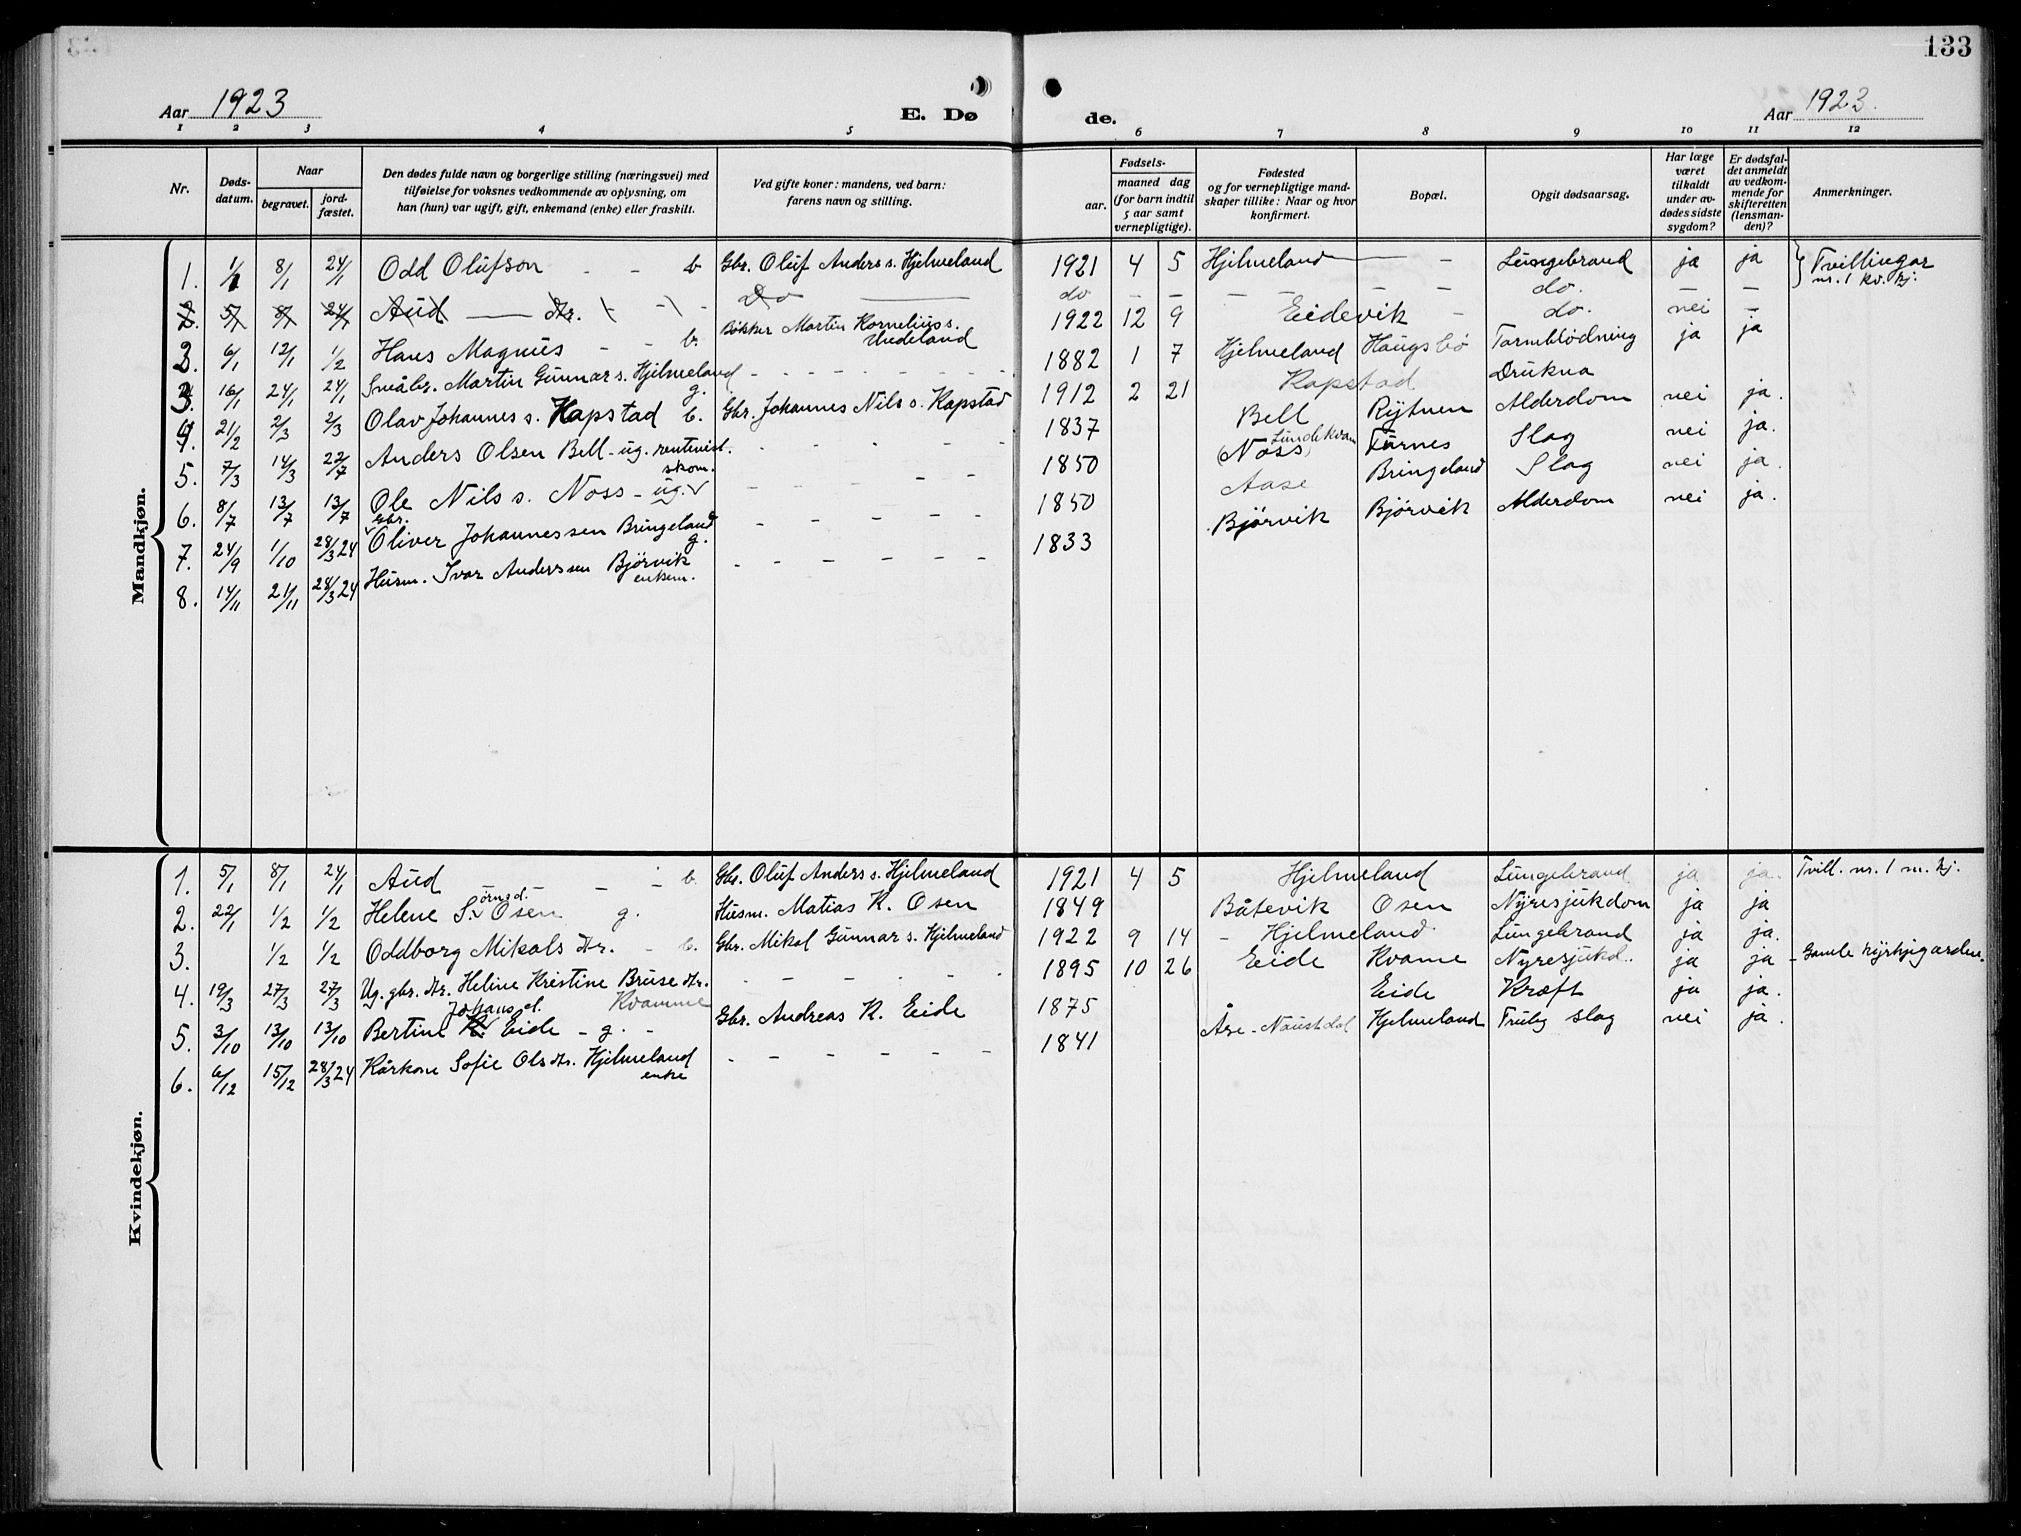 133
Aar 1923
E. Dø
de.
Aar 1923.
1 2 3 4 5 6 7 8 9 10 11 12
Nr.
Døds-
datum.
Naar
begravet.
jord-
fæstet.
Den dødes fulde navn og borgerlige stilling (næringsvei) med
tilføielse for voksnes vedkommende av oplysning, om
han (hun) var ugift, gift, enkemand (enke) eller fraskilt.
Ved gifte koner: mandens, ved barn:
farens navn og stilling.
Fødsels-
aar.
maaned dag
(for barn indtil
5 aar samt
vernepligtige).
Fødested
og for vernepligtige mand-
skaper tillike: Naar og hvor
konfirmert.
Bopæl.
Opgit dødsaarsag.
Har læge
været
tilkaldt
under av-
dødes sidste
sygdom?
Er dødsfal-
det anmeldt
av vedkom-
mende for
skifteretten
(lensman-
den)?
Anmerkninger.
Mandkjøn.
1. 1/1 8/1 24/1 Odd Olufson - - b Gbr. Oluf Anders s. Hjelmeland 1921 4 5 Hjelmeland - Lungebrand ja ja Tvillingar nr. 1 kv. kj.
2. 5/1 8/1 24/1 Aud dtr. Do do - - - - - - - do. - -
2. 6/1 12/1 1/2 Hans Magnus - - b. Bøkker Martin Kornelius s. Indeland 1922 12 9 Eidevik - do. nei -
3. 16/1 24/1 24/1 Småbr. Martin Gunnar s. Hjelmeland g. - - - - - - - 1882 1 7 Hjelmeland Haugsbø Tarmblödning ja ja
4. 21/2 2/3 2/3 Olav Johannes s. Kapstad b. Gbr. Johannes Nils s. Kapstad 1912 2 21 Kapstad Drukna
5. 7/3 14/3 22/7 Anders Olsen Bell - ug. rentenist. - - - - 1837 Bell Rytnen Alderdom nei ja.
6. 8/7 13/7 13/7 Ole Nils s. Noss - ug. skom. - - - - - 1850 (Noss) Lundekvam Furnes Slag nei ja.
7. 24/9 1/10 28/3 24 Gbr. Oliver Johannessen Bringeland g. - - - - - 1850 Aase Bringeland Slag nei ja.
8. 14/11 21/11 28/3 24 Husm. Ivar Anderssen Björvik enkem. - - - - - - 1833 Björvik Björvik Alderdom nei ja.
Kvindekjøn.
1. 5/1 8/1 24/1 Aud - - b. Gbr. Oluf Anders s. Hjelmeland 1921 4 5 Hjelmeland Lungebrand ja ja. Tvill. nr. 1 m. kj.
2. 22/1 1/2 1/2 Helene S. örnsd. Osen g. Husm. Matias K. Osen 1849 Båtevik Osen Nyresjukdom ja ja
3. 1/2 1/2 Oddborg Mikals dtr. - b. Gbr. Mikal Gunnar s. Hjelmeland 1922 9 14 - Hjelmeland. Lungebrand ja ja.
4. 19/3 27/3 27/3 Ug. gbr. dtr. Heline Kristine Bruse dtr. Kvamme - - - - - 1895 10 26 Eide Kvame Nyresjukd. ja ja - Gamle kyrkjegarden.
5. 3/10 13/10 13/10 Bertine Johans d. Eide - g. - Gbr. Andreas K. Eide 1875 Eide Kræft ja ja.
6. 6/12 15/12 28/3 24 Kårkone Sofie Ols dtr. Hjelmeland enke - - - - - - 1841 Åse - Naustdal Hjelmeland Trulig slag nei ja.